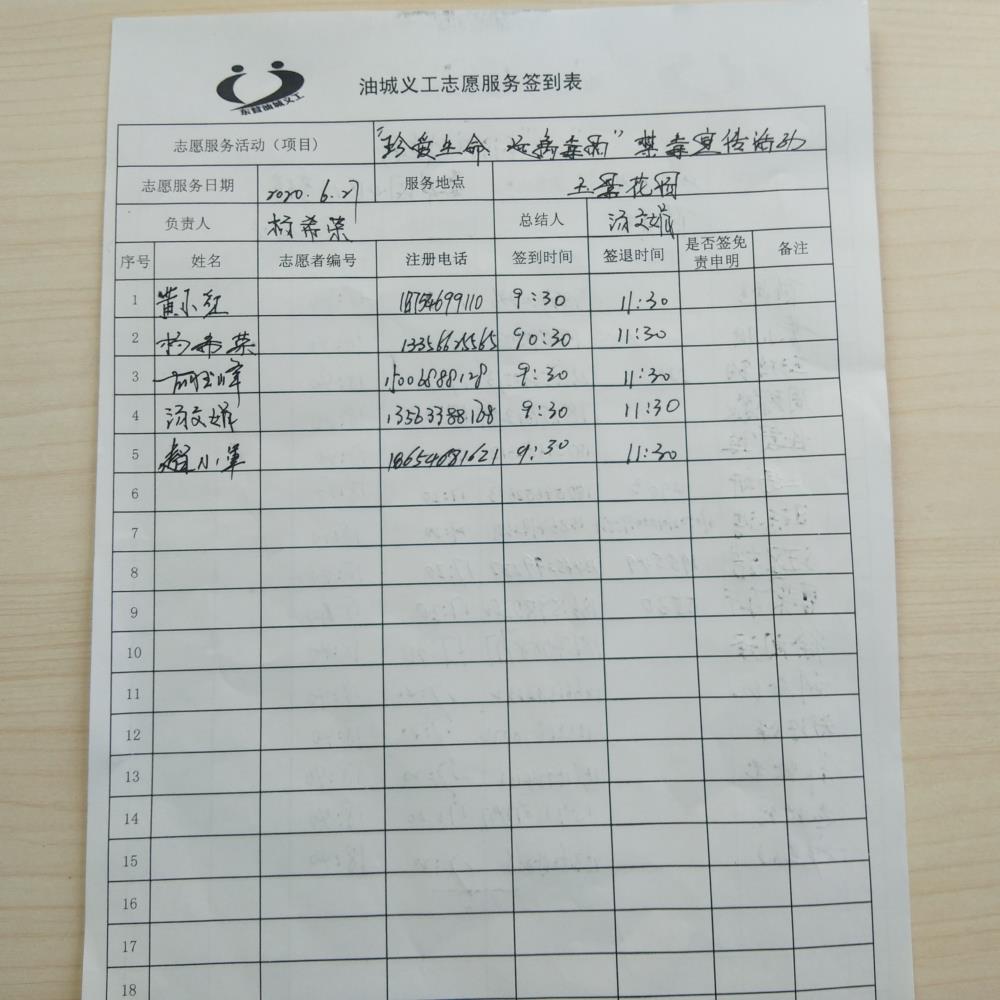 东营油城义工
油城义工志愿服务签到表
志愿服务活动（项目） "珍爱生命、远离毒品"禁毒宣传活动
志愿服务日期 2020.6.27 服务地点 玉景花园
负责人 杨希荣 总结人 汤文娥
序号 姓名 志愿者编号 注册电话 签到时间 签退时间 是否签免责申明 备注
1 黄小红 18754699110 9:30 11:30
2 杨希荣 13356625565 90:30 11:30
3 15006888128 9:30 11:30
4 汤文娥 13563388168 9:30 11:30
5 赵小军 18654681621 9:30 11:30
6
7
8
9
10
11
12
13
14
15
16
17
18